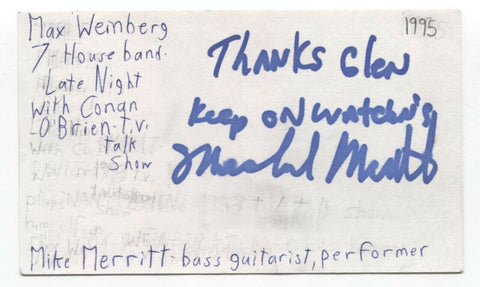 Max Weinberg
7 House band.
Late Night
with Conan
O'Brien t.v.
talk
show
1995
THANKS Glen
Keep ON WATCHN'g
Mike Merritt - bass guitarist, performer